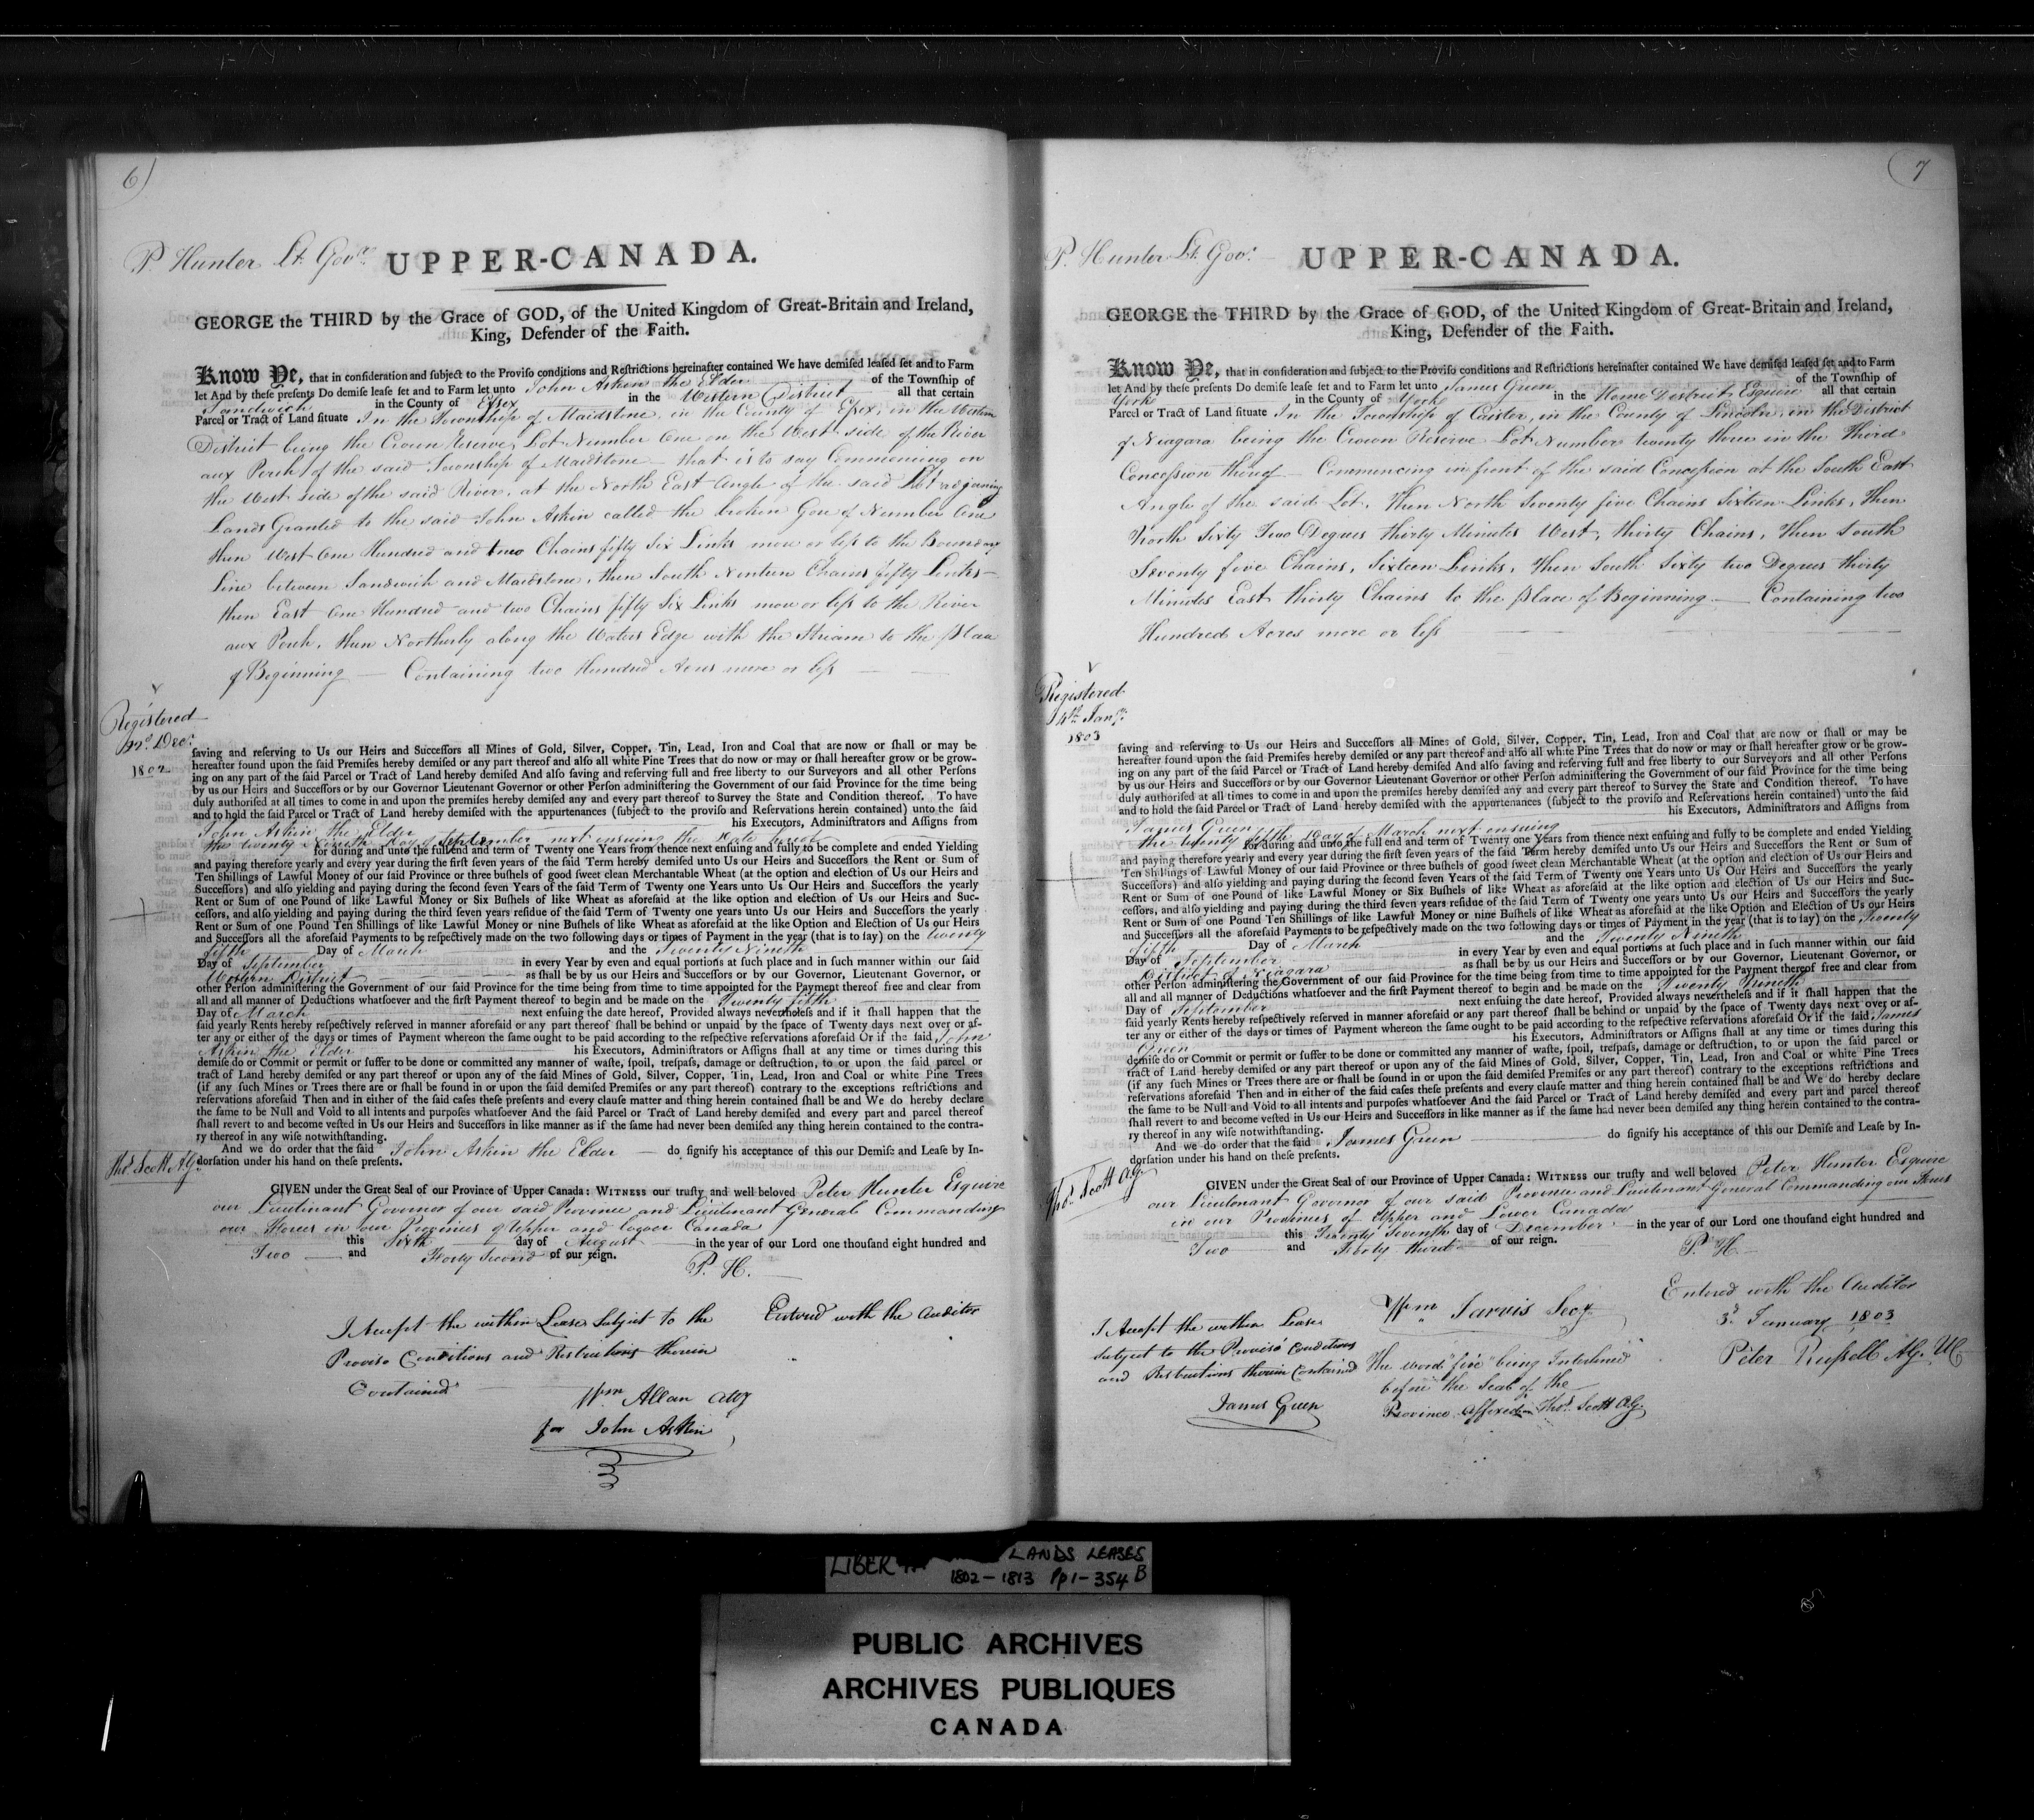 6)
P. Hunter Lt. Govr.
UPPER-CANADA.
GEORGE the THIRD by the Grace of GOD, of the United Kingdom of Great-Britain and Ireland,
King, Defender of the Faith.
Know Ye, that in consideration and subject to the Proviso conditions and Restrictions hereinafter contained We have demised leased set and to Farm
let And by these presents Do demise lease set and to Farm let unto John Askin the Elder of the Township of
Sandwich in the County of Essex in the Western District all that certain
Parcel or Tract of Land situate In the Township of Maidstone, in the County of Essex, in the Western
District being the Crown Reserve, Lot Number One on the West side of the River
aux Perch of the said Township of Maidstone — that is to say Commencing on
the West side of the said River, at the North East Angle of the said Lot adjoining
Lands Granted to the said John Askin called the broken Gore of Number One
then West One Hundred and two Chains fifty Six Links more or less to the Boundary
Line between Sandwich and Maidstone, then South Nineteen Chains fifty Links —
then East One Hundred and two Chains fifty Six Links more or less to the River
aux Perch, then Northerly along the Waters Edge with the Stream to the place
of Beginning — Containing two Hundred Acres more or less
Registered
22d. Decr.
1802
saving and reserving to Us our Heirs and Successors all Mines of Gold, Silver, Copper, Tin, Lead, Iron and Coal that are now or shall or may be
hereafter found upon the said Premises hereby demised or any part thereof and also all white Pine Trees that do now or may or shall hereafter grow or be grow-
ing on any part of the said Parcel or Tract of Land hereby demised And also saving and reserving full and free liberty to our Surveyors and all other Persons
by us our Heirs and Successors or by our Governor Lieutenant Governor or other Person administering the Government of our said Province for the time being
duly authorised at all times to come in and upon the premises hereby demised any and every part thereof to Survey the State and Condition thereof. To have
and to hold the said Parcel or Tract of Land hereby demised with the appurtenances (subject to the proviso and Reservations herein contained) unto the said
John Askin the Elder his Executors, Administrators and Assigns from
the twenty Nineth Day of September next ensuing the Date hereof
for during and unto the full end and term of Twenty one Years from thence next ensuing and fully to be complete and ended Yielding
and paying therefore yearly and every year during the first seven years of the said Term hereby demised unto Us our Heirs and Successors the Rent or Sum of
Ten Shillings of Lawful Money of our said Province or three bushels of good sweet clean Merchantable Wheat (at the option and election of Us our Heirs and
Successors) and also yielding and paying during the second seven Years of the said Term of Twenty one Years unto Us Our Heirs and Successors the yearly
Rent or Sum of one Pound of like Lawful Money or Six Bushels of like Wheat as aforesaid at the like option and election of Us our Heirs and Suc-
cessors, and also yielding and paying during the third seven years residue of the said Term of Twenty one years unto Us our Heirs and Successors the yearly
Rent or Sum of one Pound Ten Shillings of like Lawful Money or nine Bushels of like Wheat as aforesaid at the like Option and Election of Us our Heirs
and Successors all the aforesaid Payments to be respectively made on the two following days or times of Payment in the year (that is to say) on the twenty
fifth Day of March and the Twenty Nineth
Day of September in every Year by even and equal portions at such place and in such manner within our said
Western District as shall be by us our Heirs and Successors or by our Governor, Lieutenant Governor, or
other Person administering the Government of our said Province for the time being from time to time appointed for the Payment thereof free and clear from
all and all manner of Deductions whatsoever and the first Payment thereof to begin and be made on the Twenty fifth
Day of March next ensuing the date hereof, Provided always nevertheless and if it shall happen that the
said yearly Rents hereby respectively reserved in manner aforesaid or any part thereof shall be behind or unpaid by the space of Twenty days next over or af-
ter any or either of the days or times of Payment whereon the same ought to be paid according to the respective reservations aforesaid Or if the said John
Askin the Elder his Executors, Administrators or Assigns shall at any time or times during this
demise do or Commit or permit or suffer to be done or committed any manner of waste, spoil, trespass, damage or destruction, to or upon the said parcel or
tract of Land hereby demised or any part thereof or upon any of the said Mines of Gold, Silver, Copper, Tin, Lead, Iron and Coal or white Pine Trees
(if any such Mines or Trees there are or shall be found in or upon the said demised Premises or any part thereof) contrary to the exceptions restrictions and
reservations aforesaid Then and in either of the said cases these presents and every clause matter and thing herein contained shall be and We do hereby declare
the same to be Null and Void to all intents and purposes whatsoever And the said Parcel or Tract of Land hereby demised and every part and parcel thereof
shall revert to and become vested in Us our Heirs and Successors in like manner as if the same had never been demised any thing herein contained to the contra-
ry thereof in any wise notwithstanding.
And we do order that the said John Askin the Elder do signify his acceptance of this our Demise and Lease by In-
Thos. Scott A.G.
dorsation under his hand on these presents.
GIVEN under the Great Seal of our Province of Upper Canada: WITNESS our trusty and well beloved Peter Hunter Esquire
our Lieutenant Governor of our said Province and Lieutenant General Commanding
our Forces in our Provinces of Upper and Lower Canada
this Sixth day of August in the year of our Lord one thousand eight hundred and
Two and Forty Second of our reign.
P. H.
I Accept the within Lease Subject to the
Proviso Conditions and Restrictions therein
Contained
Entered with the Auditor
Wm. Allan atty
for John Askin
7
P. Hunter Lt. Govr.
UPPER-CANADA.
GEORGE the THIRD by the Grace of GOD, of the United Kingdom of Great-Britain and Ireland,
King, Defender of the Faith.
Know Ye, that in consideration and subject to the Proviso conditions and Restrictions hereinafter contained We have demised leased set and to Farm
let And by these presents Do demise lease set and to Farm let unto James Green of the Township of
York in the County of York in the Home District Esquire all that certain
Parcel or Tract of Land situate In the Township of Caistor, in the County of Lincoln, in the District
of Niagara being the Crown Reserve Lot Number twenty three in the Third
Concession thereof — Commencing in front of the said Concession at the South East
Angle of the said Lot, Then North Seventy five Chains Sixteen Links, then
North Sixty Two Degrees thirty Minutes West, thirty Chains, then South
Seventy five Chains, Sixteen Links, Then South Sixty two Degrees thirty
Minutes East thirty Chains to the place of Beginning — Containing two
Hundred Acres more or less
Registered
4th. Jany.
1803
saving and reserving to Us our Heirs and Successors all Mines of Gold, Silver, Copper, Tin, Lead, Iron and Coal that are now or shall or may be
hereafter found upon the said Premises hereby demised or any part thereof and also all white Pine Trees that do now or may or shall hereafter grow or be grow-
ing on any part of the said Parcel or Tract of Land hereby demised And also saving and reserving full and free liberty to our Surveyors and all other Persons
by us our Heirs and Successors or by our Governor Lieutenant Governor or other Person administering the Government of our said Province for the time being
duly authorised at all times to come in and upon the premises hereby demised any and every part thereof to Survey the State and Condition thereof. To have
and to hold the said Parcel or Tract of Land hereby demised with the appurtenances (subject to the proviso and Reservations herein contained) unto the said
James Green his Executors, Administrators and Assigns from
the twenty fifth Day of March next ensuing
for during and unto the full end and term of Twenty one Years from thence next ensuing and fully to be complete and ended Yielding
and paying therefore yearly and every year during the first seven years of the said Term hereby demised unto Us our Heirs and Successors the Rent or Sum of
Ten Shillings of Lawful Money of our said Province or three bushels of good sweet clean Merchantable Wheat (at the option and election of Us our Heirs and
Successors) and also yielding and paying during the second seven Years of the said Term of Twenty one Years unto Us Our Heirs and Successors the yearly
Rent or Sum of one Pound of like Lawful Money or Six Bushels of like Wheat as aforesaid at the like option and election of Us our Heirs and Suc-
cessors, and also yielding and paying during the third seven years residue of the said Term of Twenty one years unto Us our Heirs and Successors the yearly
Rent or Sum of one Pound Ten Shillings of like Lawful Money or nine Bushels of like Wheat as aforesaid at the like Option and Election of Us our Heirs
and Successors all the aforesaid Payments to be respectively made on the two following days or times of Payment in the year (that is to say) on the Twenty
fifth Day of March and the Twenty Nineth
Day of September in every Year by even and equal portions at such place and in such manner within our said
District of Niagara as shall be by us our Heirs and Successors or by our Governor, Lieutenant Governor, or
other Person administering the Government of our said Province for the time being from time to time appointed for the Payment thereof free and clear from
all and all manner of Deductions whatsoever and the first Payment thereof to begin and be made on the Twenty Nineth
Day of September next ensuing the date hereof, Provided always nevertheless and if it shall happen that the
said yearly Rents hereby respectively reserved in manner aforesaid or any part thereof shall be behind or unpaid by the space of Twenty days next over or af-
ter any or either of the days or times of Payment whereon the same ought to be paid according to the respective reservations aforesaid Or if the said James
Green his Executors, Administrators or Assigns shall at any time or times during this
demise do or Commit or permit or suffer to be done or committed any manner of waste, spoil, trespass, damage or destruction, to or upon the said parcel or
tract of Land hereby demised or any part thereof or upon any of the said Mines of Gold, Silver, Copper, Tin, Lead, Iron and Coal or white Pine Trees
(if any such Mines or Trees there are or shall be found in or upon the said demised Premises or any part thereof) contrary to the exceptions restrictions and
reservations aforesaid Then and in either of the said cases these presents and every clause matter and thing herein contained shall be and We do hereby declare
the same to be Null and Void to all intents and purposes whatsoever And the said Parcel or Tract of Land hereby demised and every part and parcel thereof
shall revert to and become vested in Us our Heirs and Successors in like manner as if the same had never been demised any thing herein contained to the contra-
ry thereof in any wise notwithstanding.
And we do order that the said James Green do signify his acceptance of this our Demise and Lease by In-
dorsation under his hand on these presents.
Thos. Scott AG
GIVEN under the Great Seal of our Province of Upper Canada: WITNESS our trusty and well beloved Peter Hunter Esquire
our Lieutenant Governor of our said Province and Lieutenant General Commanding our Forces
in our Provinces of Upper and Lower Canada
this Twenty Seventh day of December in the year of our Lord one thousand eight hundred and
Two and Forty third of our reign.
P. H.
Entered with the Auditor
3d. January 1803
Peter Russell A.G. UC
Wm Jarvis Secy
I Accept the within Lease
subject to the Proviso Conditions
and Restrictions therein Contained
James Green
The word "five" being Interlined
before the Seal of the
Province affixed Thos. Scott AG.
LIBER LANDS LEASES
1802 - 1813 Pp 1 - 354 B
PUBLIC ARCHIVES
ARCHIVES PUBLIQUES
CANADA